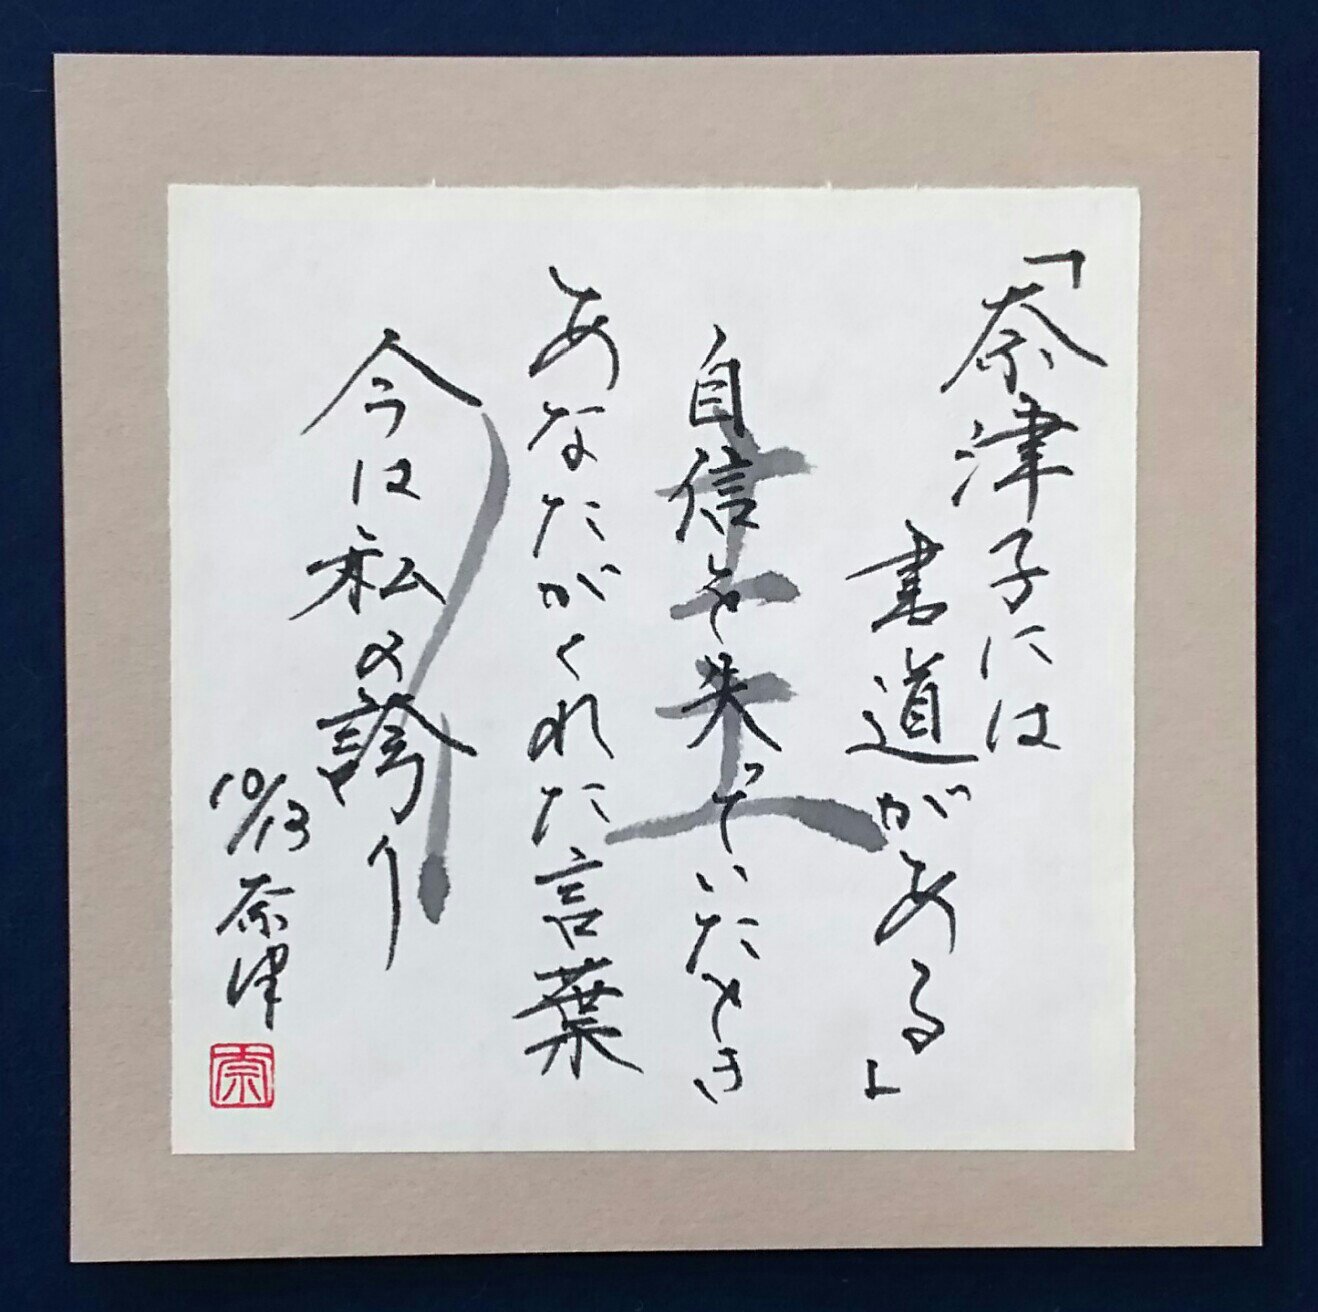 「奈津子には
書道がある」
自信を失っていたとき
あなたがくれた言葉
今は私の誇り
10/13 奈津
奈